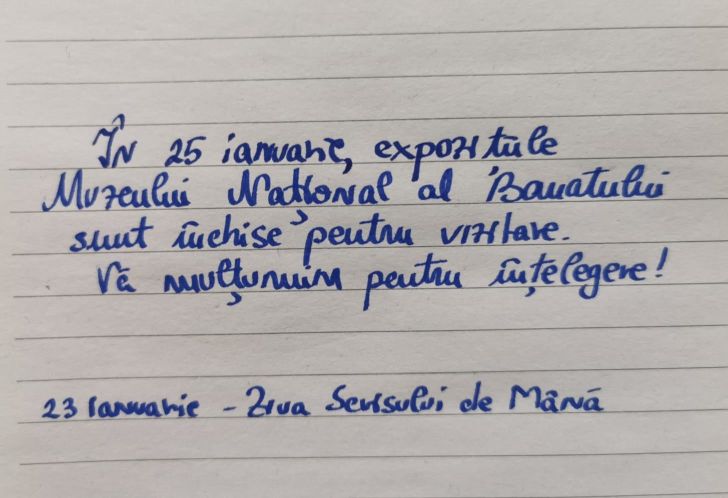 În 25 ianuarie, expozițiile
Muzeului Național al Banatului
sunt închise pentru vizitare.
Vă mulțumim pentru înțelegere!
23 Ianuarie - Ziua Scrisului de Mână